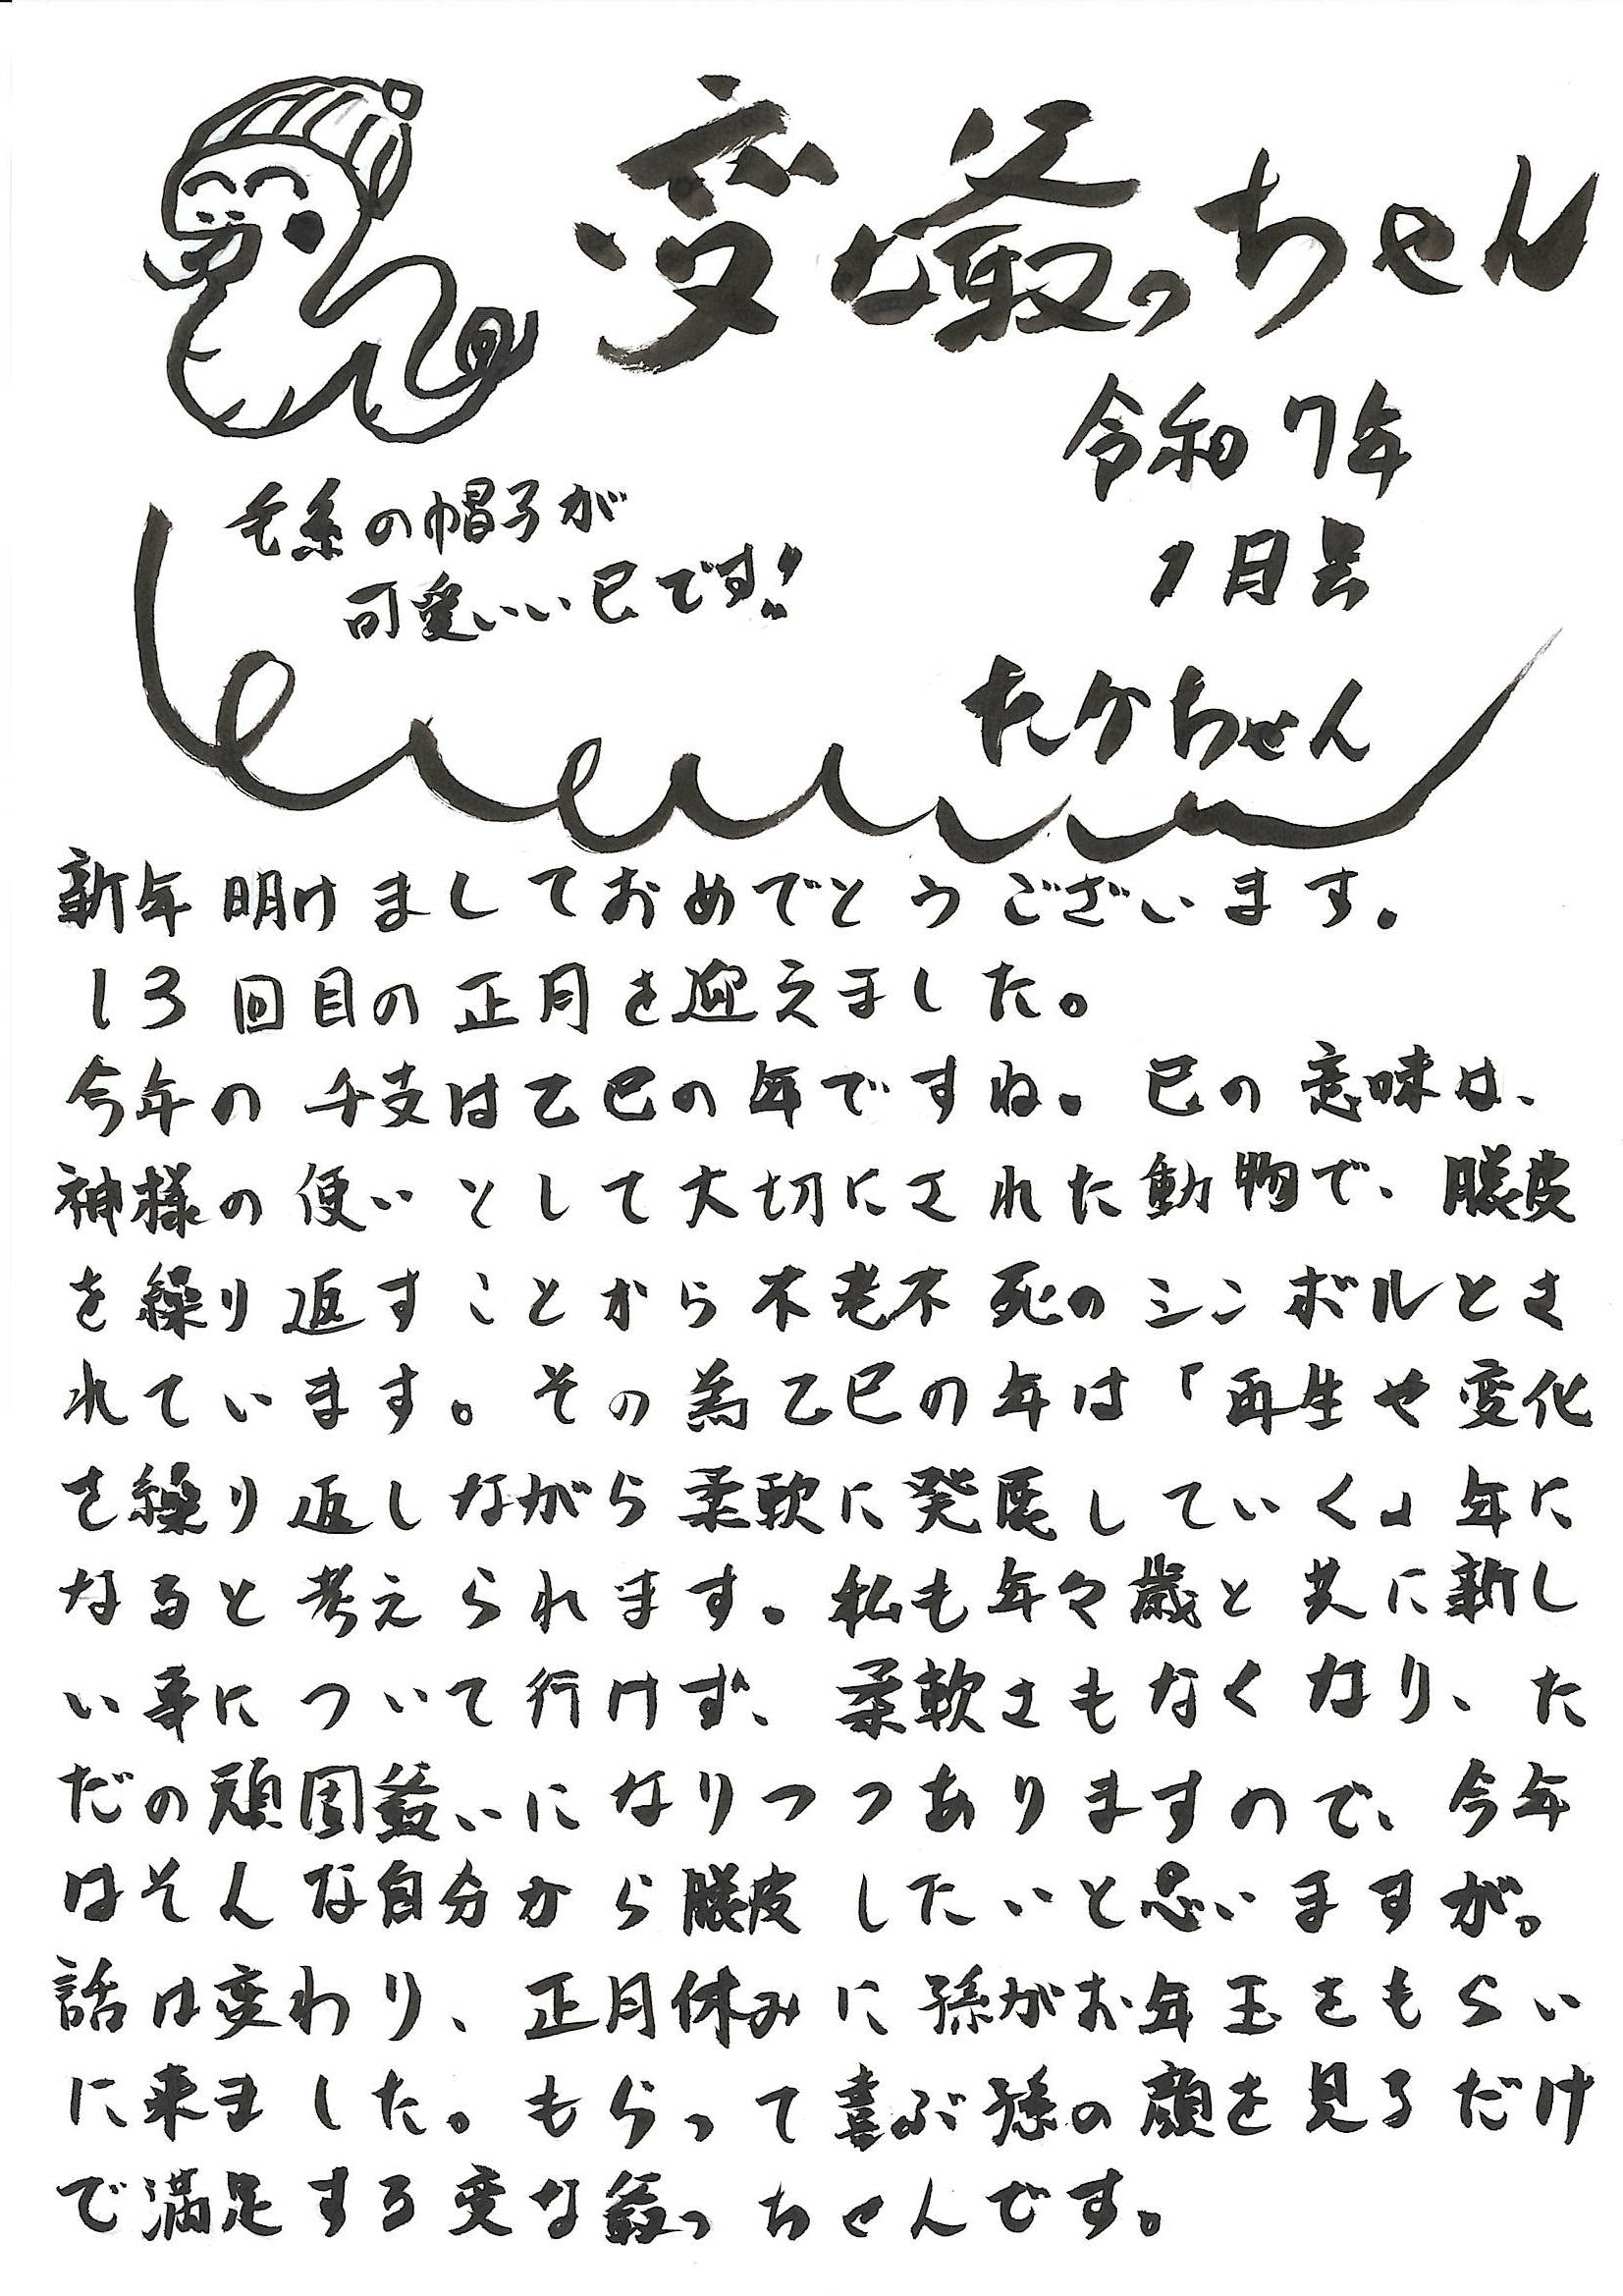 変な爺っちゃん
令和7年
1月号
毛糸の帽子が
可愛いい巳です!!
たかちゃん
新年明けましておめでとうございます。
13回目の正月を迎えました。
今年の千支は乙巳の年ですね。巳の意味は、
神様の使いとして大切にされた動物で、脱皮
を繰り返すことから不老不死のシンボルとさ
れています。その為乙巳の年は「再生や変化
を繰り返しながら柔軟に発展していく」年に
なると考えられます。私も年々歳と共に新し
い事について行けず、柔軟さもなくなり、た
だの頑固爺ぃになりつつありますので、今年
はそんな自分から脱皮したいと思いますが。
話は変わり、正月休みに孫がお年玉をもらい
に来ました。もらって喜ぶ孫の顔を見るだけ
で満足する変な爺っちゃんです。